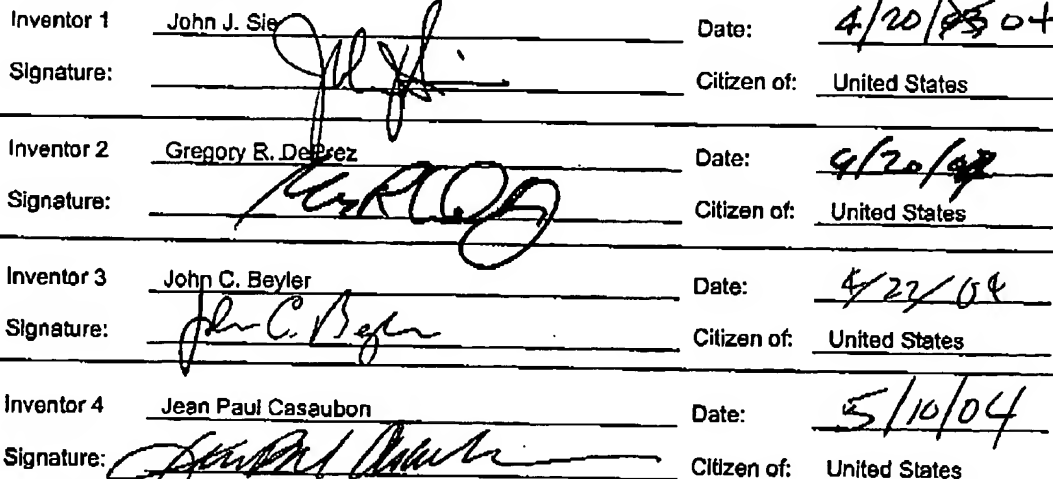 Inventor 1 John J. Sie Date: 4/20/04
Signature: Citizen of: United States
Inventor 2 Gregory R. DePrez Date: 4/20/04
Signature: Citizen of: United States
Inventor 3 John C. Beyler Date: 4/22/04
Signature: John C. Beyler Citizen of: United States
Inventor 4 Jean Paul Casaubon Date: 5/10/04
Signature: Citizen of: United States